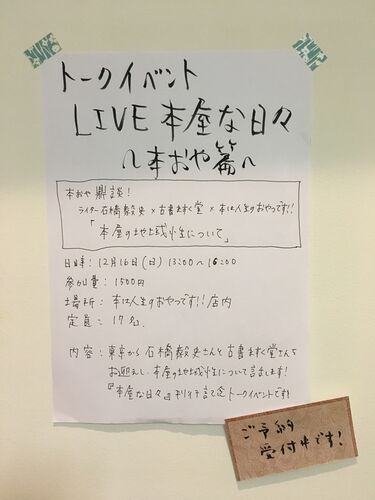 トークイベント
LIVE 本屋な日々
～本おや篇～
本おや鼎談！
ライター石橋毅史 × 古書ますく堂 × 本は人生のおやつです!!
「本屋の地域性について」
日時：12月16日(日) 13:00～16:00
参加費：1500円
場所：本は人生のおやつです!! 店内
定員：17名
内容：東京から石橋毅史さんと古書ますく堂さんを
お迎えし、本屋の地域性について話します！
『本屋な日々』刊行記念トークイベントです！
ご予約
受付中です！